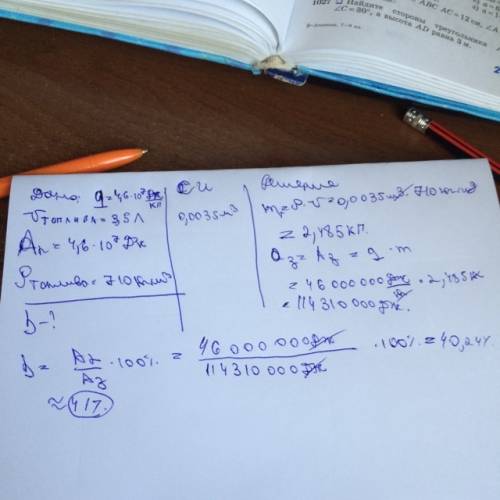 1027 Найдите стороны треугольника
∠C = 30°, а высота AD равна 3 м.
ABC AC = 12 см, ∠A
Дано: q = 4,6·10⁷ Дж/кг
V топлива = 3,5 л
Aп = 4,6·10⁷ Дж
ρ топливо = 710 кг/м³
η - ?
СИ
0,0035 м³
Решение
m = ρ·V = 0,0035 м³·710 кг/м³
= 2,485 кг.
Qз = Aз = q·m
= 46 000 000 Дж/кг · 2,485 кг
= 114310 000 Дж.
η = Aп/Aз · 100% = 46 000 000 Дж / 114310 000 Дж · 100% = 40,24%
≈ 41%